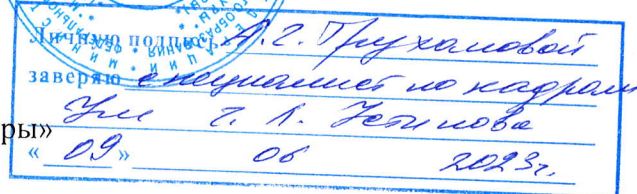 Личную подпись А.Г. Трухановой
заверяю специалист по кадрам
Г. А. Устинова
ры»
« 09 » 06 2023г.